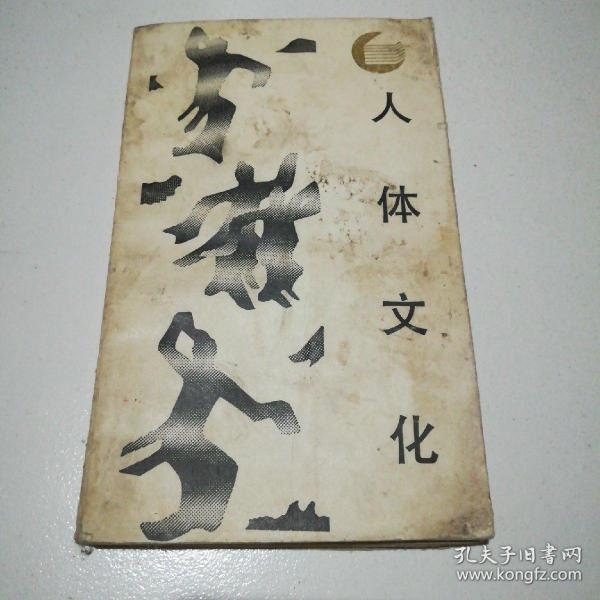 人体文化
孔夫子旧書网
www.kongfz.com